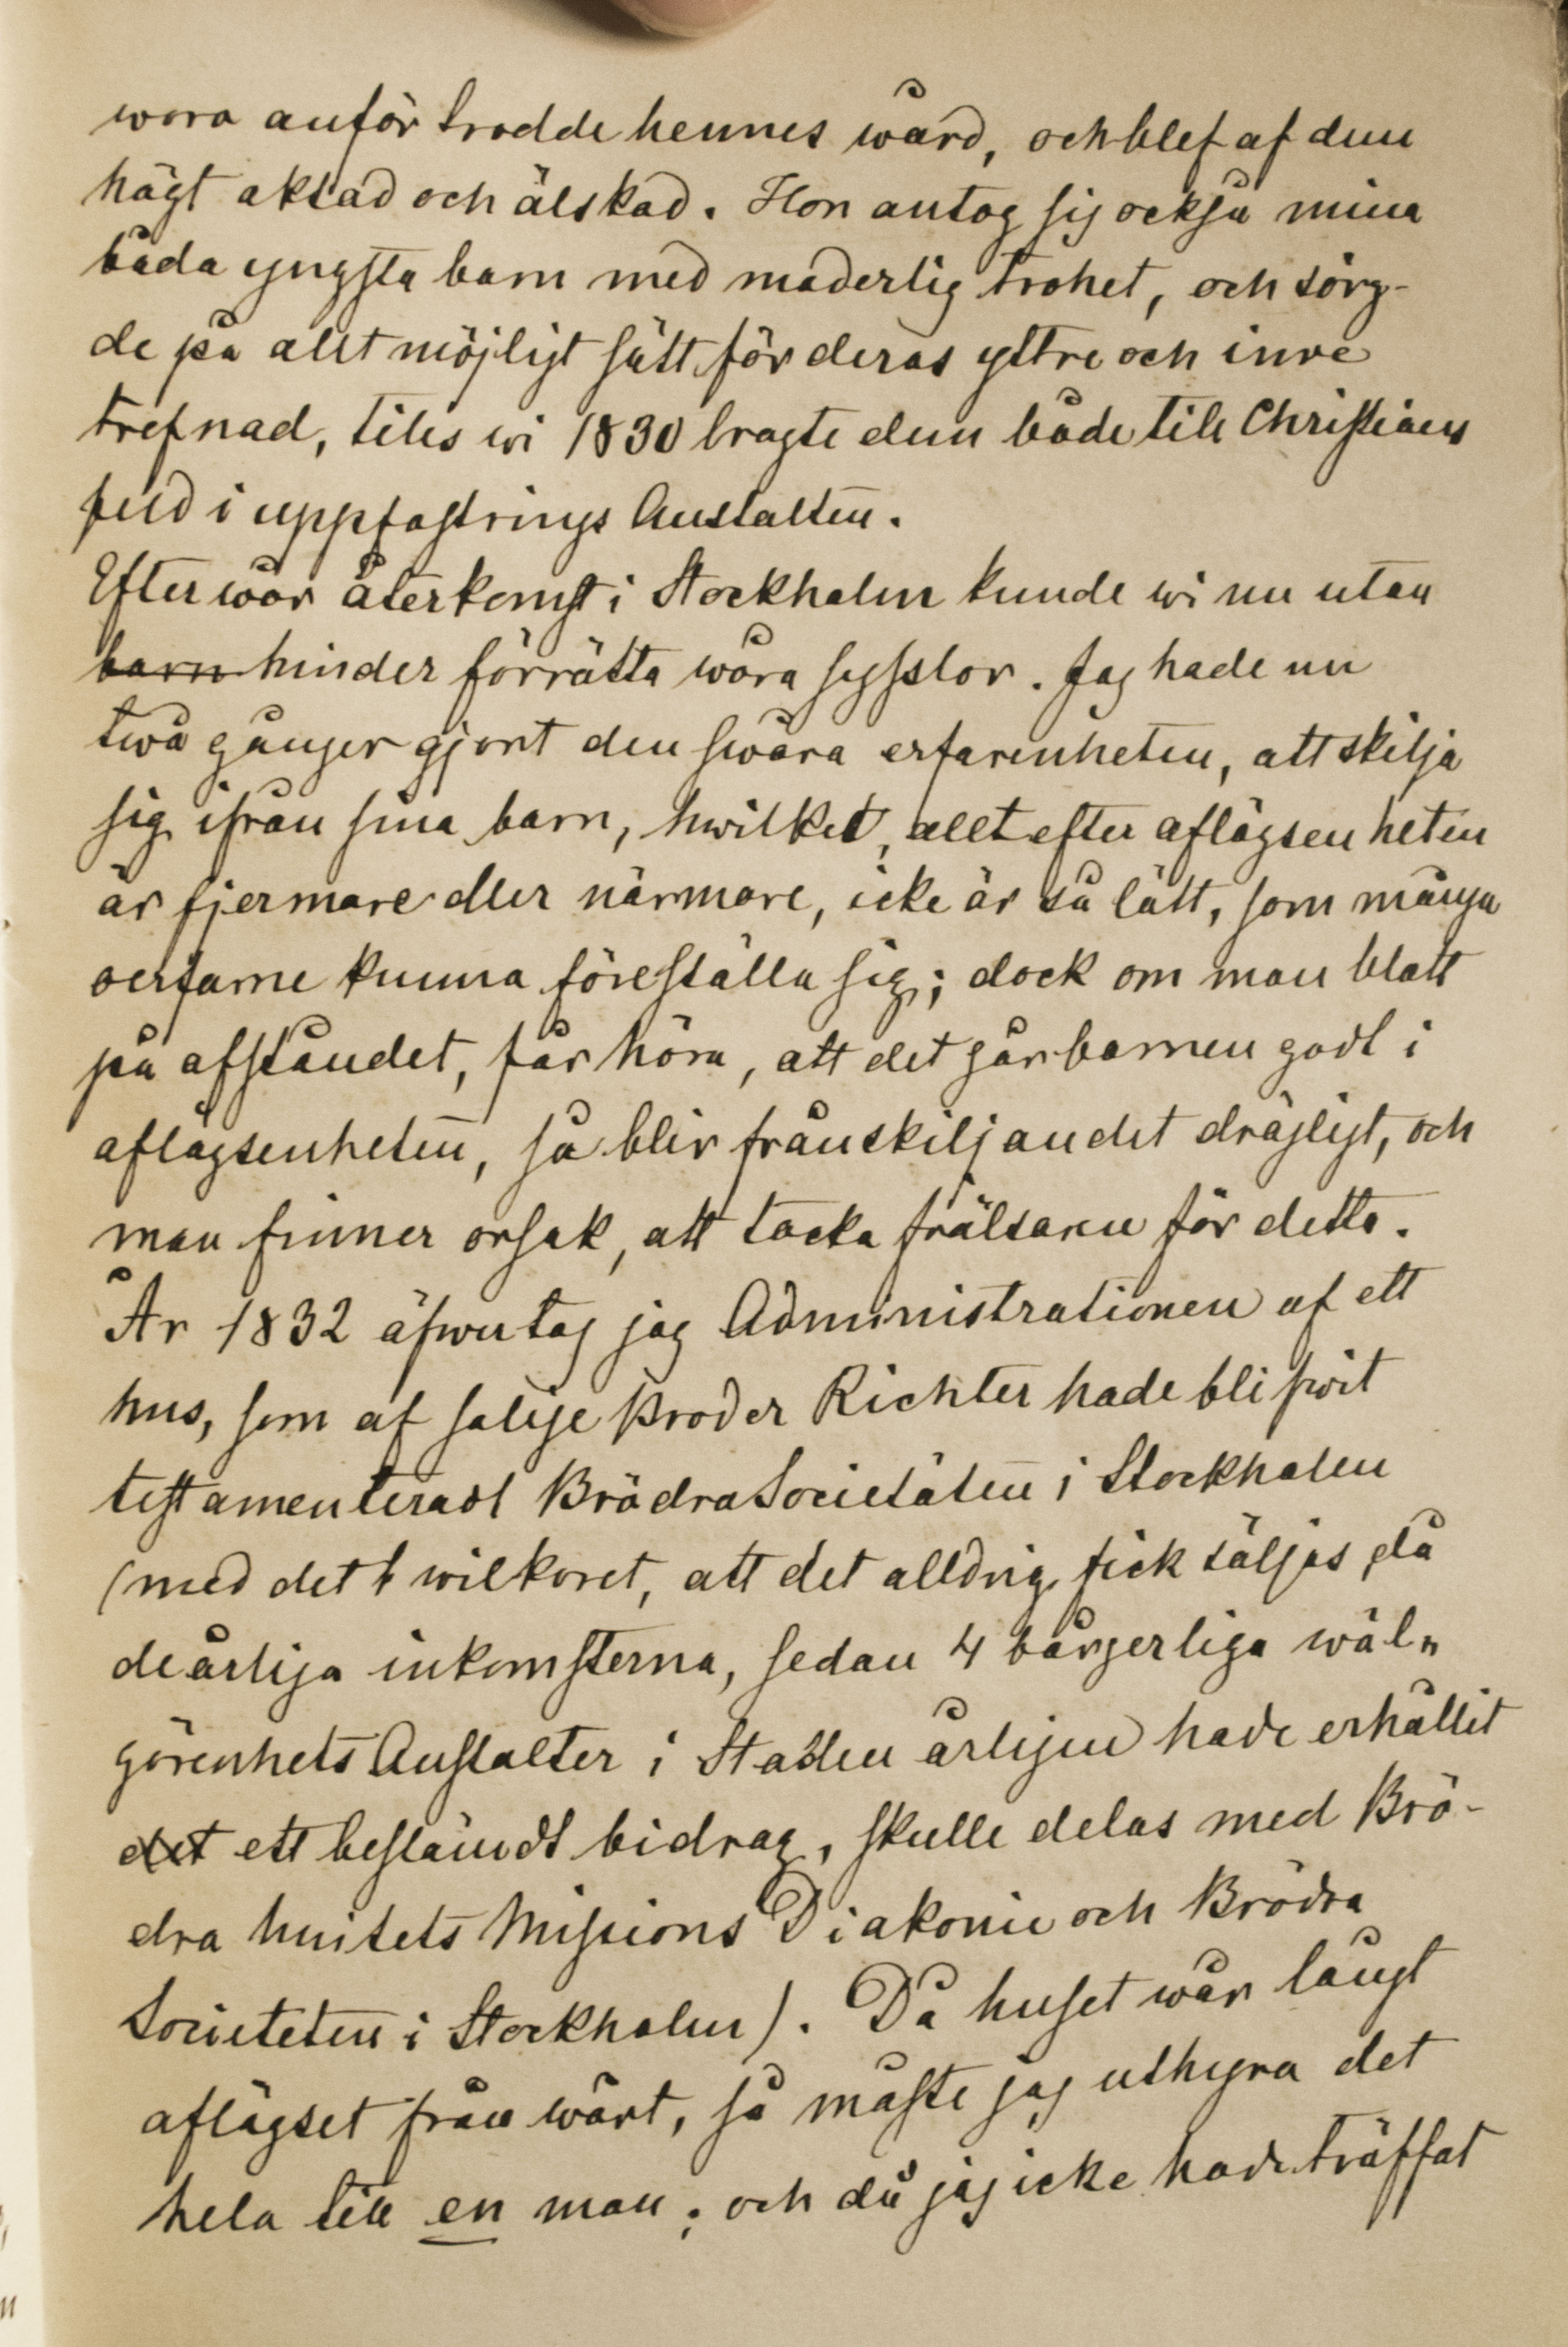 woro anförtrodde hennes wård, och blef af dem
högt aktad och älskad. Hon antog sig också mina
båda yngsta barn med moderlig trohet, och sörg-
de på allt möjligt sätt för deras yttre och inre
trefnad, tills wi 1830 bragte dem både till Christians
feld i uppfostrings Anstalten.
Efter wår återkomst i Stockholm kunde wi nu utan
barn hinder förrätta wåra sysslor. Jag hade nu
twå gånger gjort den swåra erfarenheten, att skilja
sig ifrån sina barn, hwilket, allt efter aflägsenheten
är fjermare eller närmare, icke är så lätt, som många
oerfarne kunna föreställa sig; dock om man blott
på afståndet, får höra, att det går barnen godt i
aflägsenheten, så blir frånskiljandet drägligt, och
man finner orsak, att tacka frälsaren för detta.
År 1832 äfwertog jag Administrationen af ett
hus, som af salige Broder Richter hade blifwit
testamenteradt Brödra Societäten i Stockholm
(med dett wilkoret, att det alldrig fick säljas, då
de årliga inkomsterna, sedan 4 borgerliga wäl„
görenhets Anstalter i Staden årligen hade erhållit
det ett bestämdt bidrag, skulle delas med Brö-
dra Unitets Missions Diakonie och Brödra
Societeten i Stockholm). Då huset war långt
aflägset från wårt, så måste jag uthyra det
hela till en man; och då jag icke hade träffat